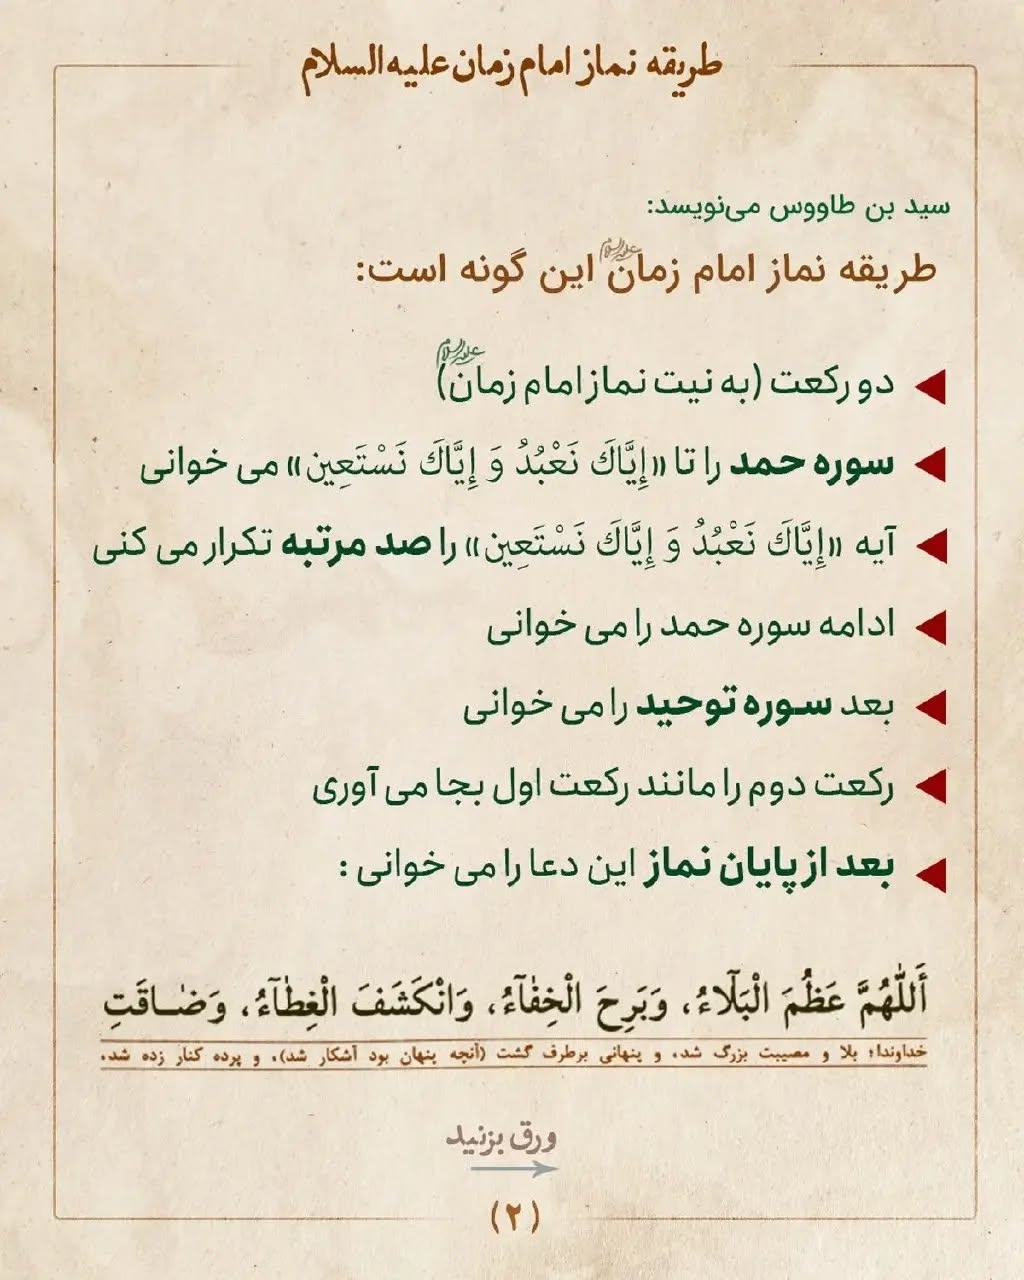 طریقه نماز امام زمان علیه السلام
سید بن طاووس می‌نویسد:
طریقه نماز امام زمان علیه السلام این گونه است:
دو رکعت (به نیت نماز امام زمان علیه السلام)
سوره حمد را تا «إِیَّاكَ نَعْبُدُ وَ إِیَّاكَ نَسْتَعِین» می خوانی
آیه «إِیَّاكَ نَعْبُدُ وَ إِیَّاكَ نَسْتَعِین» را صد مرتبه تکرار می کنی
ادامه سوره حمد را می خوانی
بعد سوره توحید را می خوانی
رکعت دوم را مانند رکعت اول بجا می آوری
بعد از پایان نماز این دعا را می خوانی :
أَللّٰهُمَّ عَظُمَ الْبَلَآءُ، وَبَرِحَ الْخِفٰآءُ، وَانْكَشَفَ الْغِطٰآءُ، وَضٰاقَتِ
خداوندا؛ بلا و مصیبت بزرگ شد، و پنهانی برطرف گشت (آنچه پنهان بود آشکار شد)، و پرده کنار زده شد،
ورق بزنید
(۲)